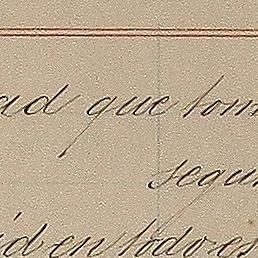 ad que tom
segu
identodores